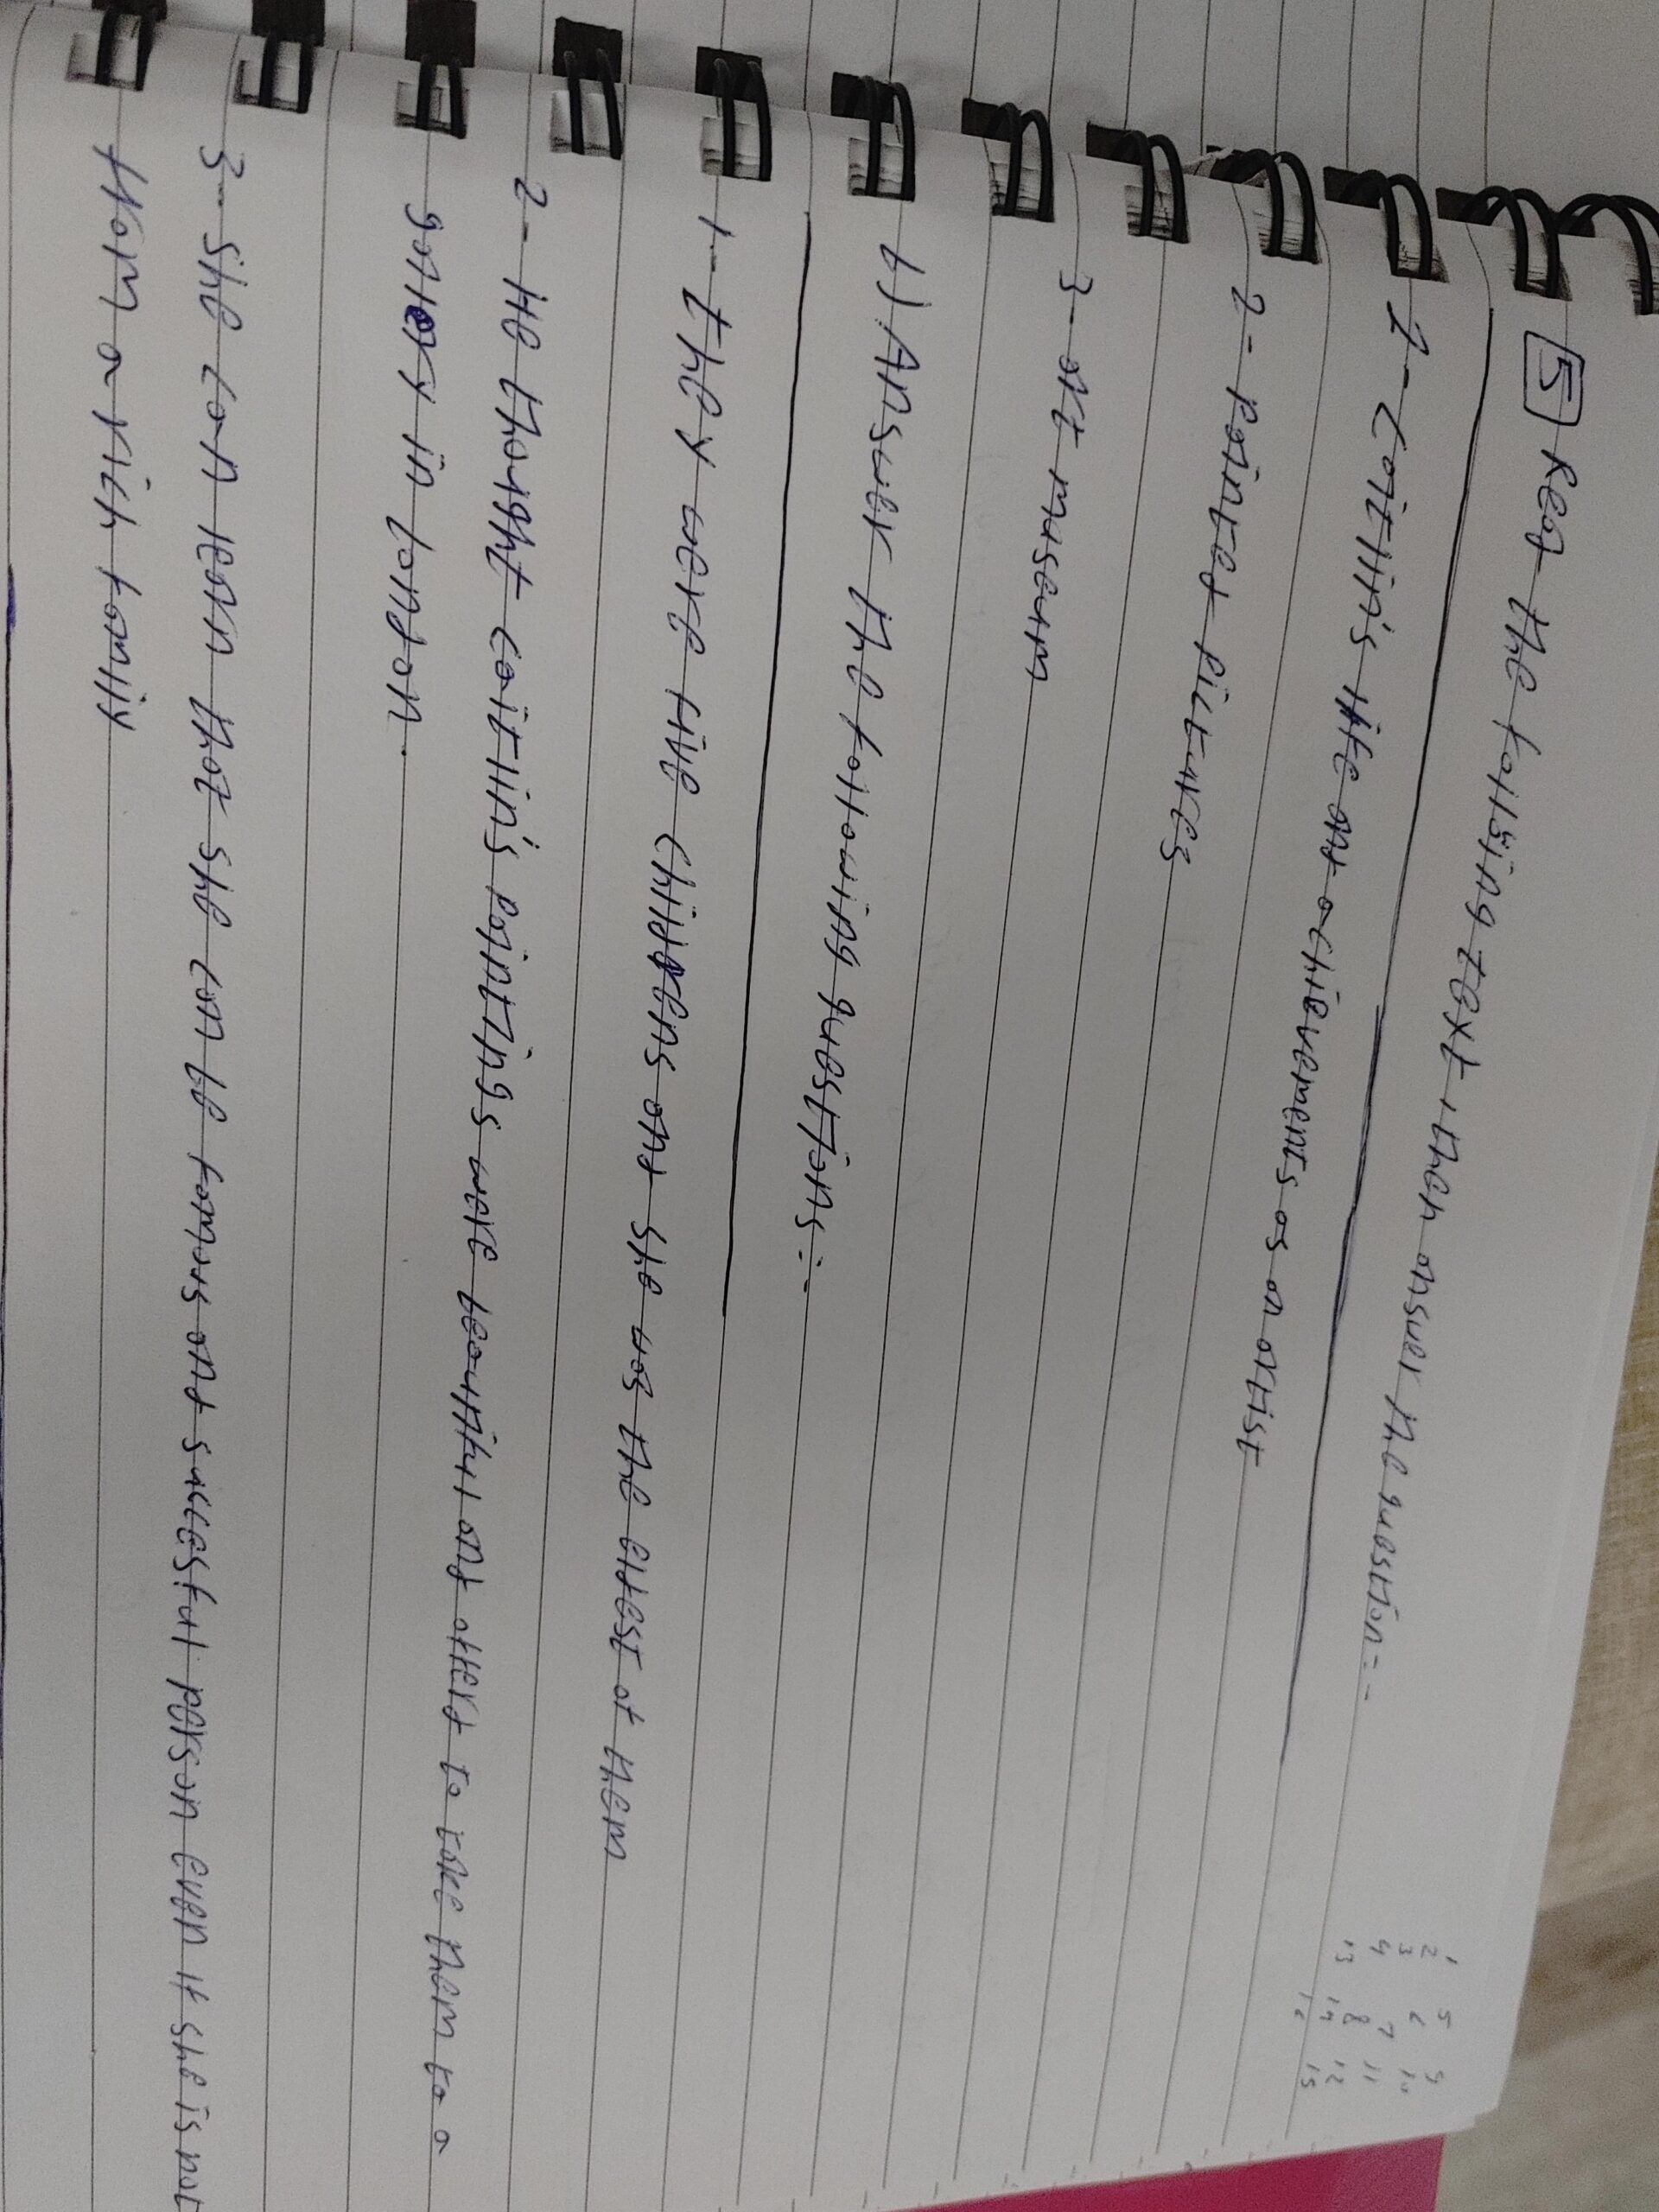 5 Read the following text, then answer the question:-
1- Caitlin's life and achievements as an artist
2- Painted pictures
3- art museum
b) Answer the following questions:-
1- they were five childrens and she was the eldest of them
2- He thought caitlin's paintings were beautiful and offerd to take them to a
gallery in london.
3- she can learn that she can be famous and succesful person even if she is not
from a rich family
1 5 9
2 6 10
3 7 11
4 8 12
13 14 15
16